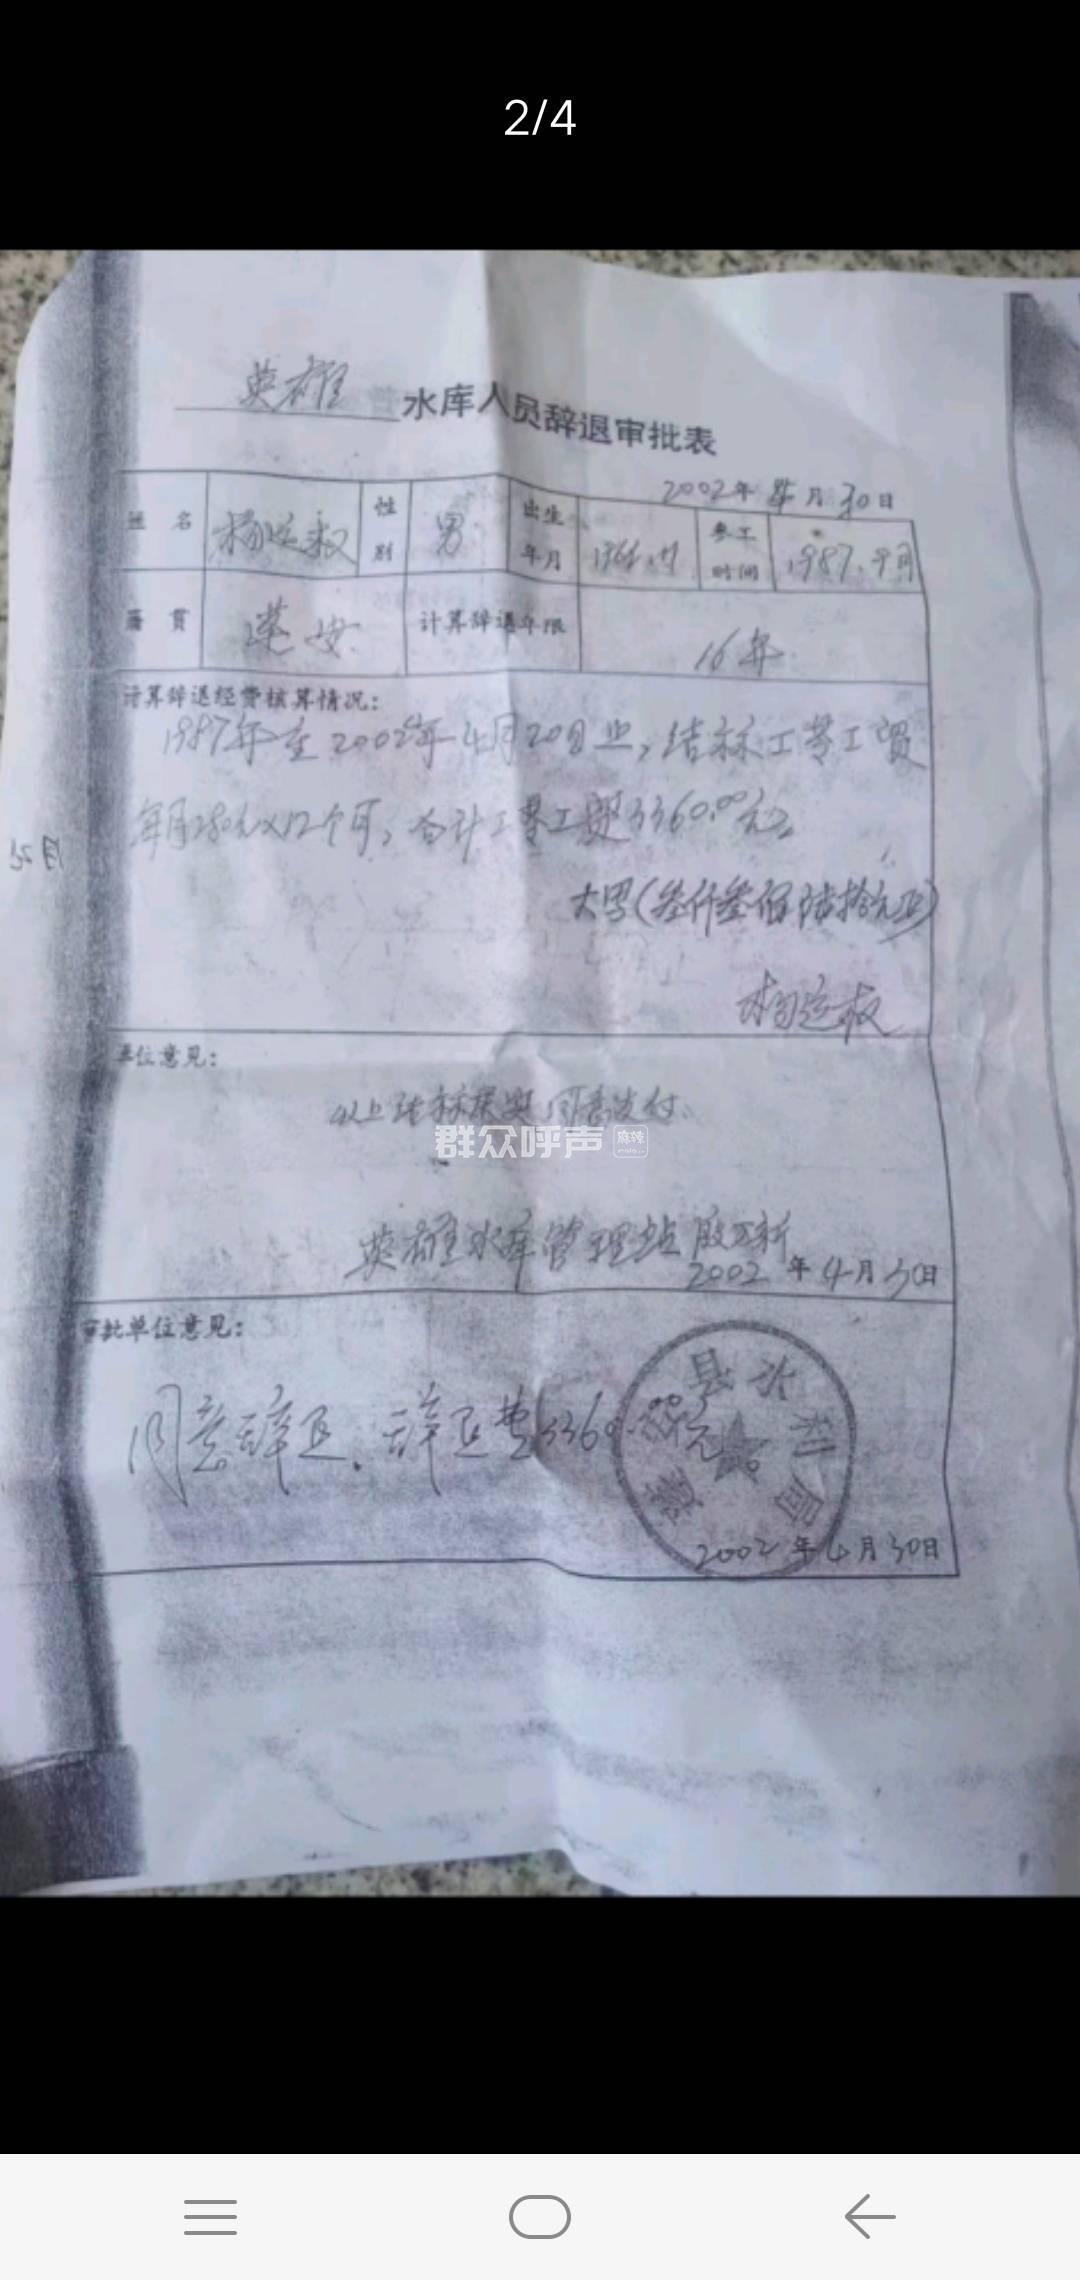 2/4
英雄 水库人员辞退审批表
2002年4月30日
姓名 杨运权 性别 男 出生年月 参工时间 1987.9月
籍贯 蓬安 计算辞退年限 16年
计算辞退经费核算情况：
1987年至2002年4月20日止，结标工零工资
每月280元×12个月，合计工零工资3360.00元。
大写（叁仟叁佰陆拾元正）
杨运权
单位意见：
以上 同意支付。
群众呼声 麻辣
英雄水库管理站
2002年4月30日
审批单位意见：
同意辞退，辞退费3360.00元。
蓬安县水利局
2002年4月30日